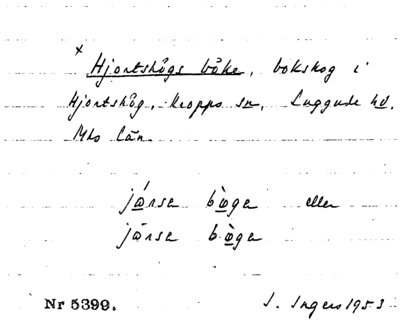 x
Hjortshögs båke, bokskog i
Hjortshög, Kropps sn, Luggude hd.
Mhs län.
jársa bòga eller
järsa bòga
Nr 5399. I. Ingers 1953